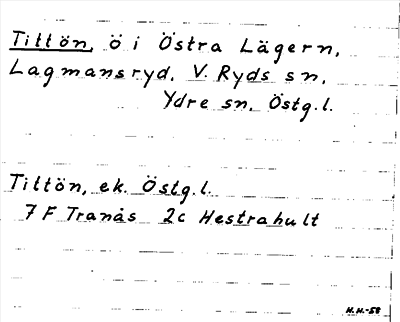 Tittön, ö i Östra Lägern,
Lagmansryd, V. Ryds sn,
Ydre sn, Östg.l.
Tittön, ek. Östg.l.
7 F Tranås 2c Hestrahult
H.H.-58